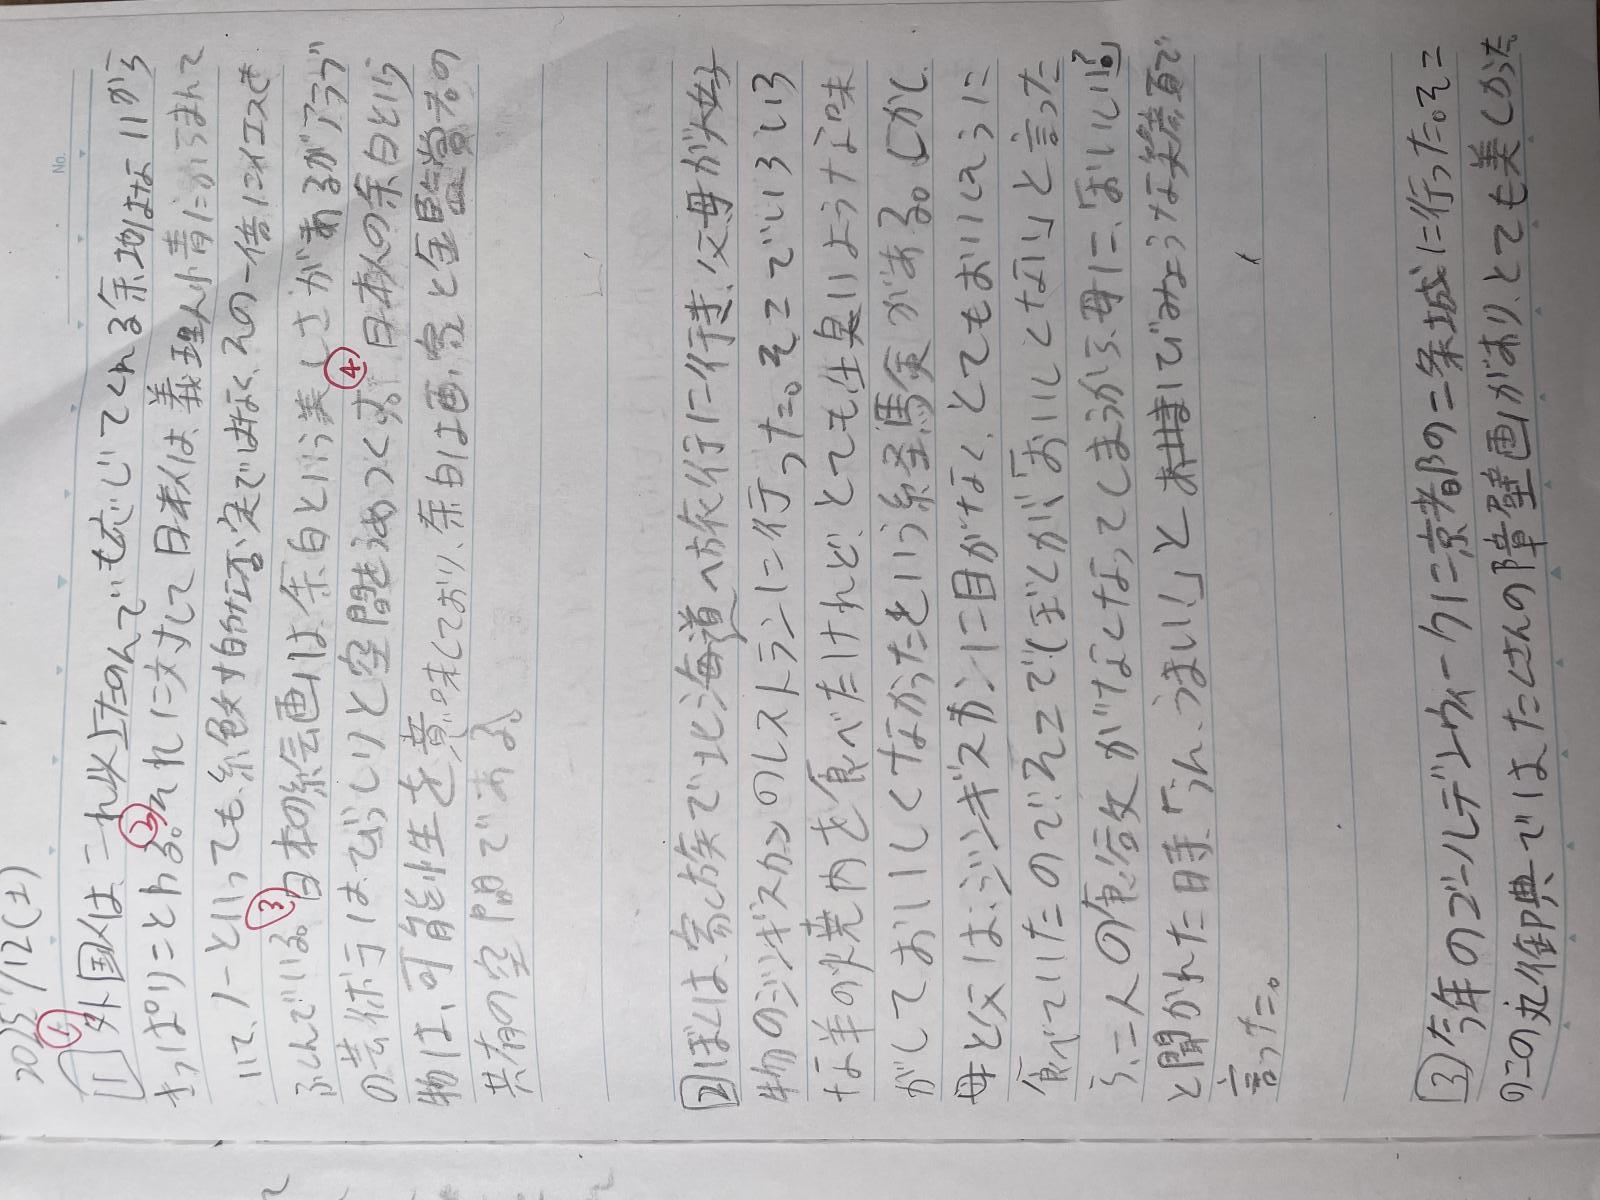 2025 7/12(土)
No.
1 ① 外国人はこれ以上たのんでも応じてくれる余地はないから
きっぱりことわる。②それに対して日本人は、義理人情にからまれて
いて、ノーといっても、絶対的な否定ではなく、その一倍にイエスを
ふくんでいる。③日本の絵画には余白という美しさがあるがアラブ
の芸術ではびっしりと空間をうめつくす。④日本人の余白という
物は、可能性を意味しており、余白は画家と鑑賞者の
共有の空間である。
2 ぼくは、家族で北海道へ旅行に行き、父母が大好
物のジンギスカンのレストランに行った。そこでいろいろ
な羊の焼肉を食べたけれど、とても生臭いような味
がしておいしくなかったという経験がある。しかし、
母と父はジンギスカンに目がなく、とてもおいしそうに
食べていたのでそこで、ぼくが「おいしくない」と言った
ら、二人の食欲がなくなってしまうから、母に、「おいしい?」
と聞かれた時、「うん、うまい!」とみようなな笑顔で
言った。
3 今年のゴールデンウィークに京都の二条城に行った。そこ
のこの丸御典ではたくさんの障壁画があり、とても美しかった